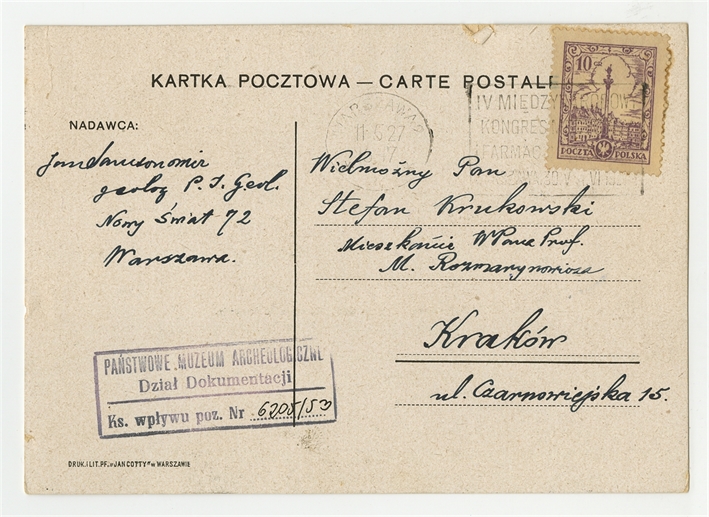 KARTKA POCZTOWA — CARTE POSTALE
10
POCZTA POLSKA
WARSZAWA
11.5.27
17
IV MIĘDZYNARODOWY
KONGRES
FARMAC
NADAWCA:
Jan Samsonowicz
geolog P. I. Geol.
Nowy Świat 72
Warszawa.
Wielmożny Pan
Stefan Krukowski
Mieszkanie WPana Prof.
M. Rozmarynowicza
Kraków
ul. Czarnowiejska 15.
PAŃSTWOWE MUZEUM ARCHEOLOGICZNE
Dział Dokumentacji
Ks. wpływu poz. Nr 6205/53
DRUK. I LIT. PF. „JAN COTTY" W WARSZAWIE